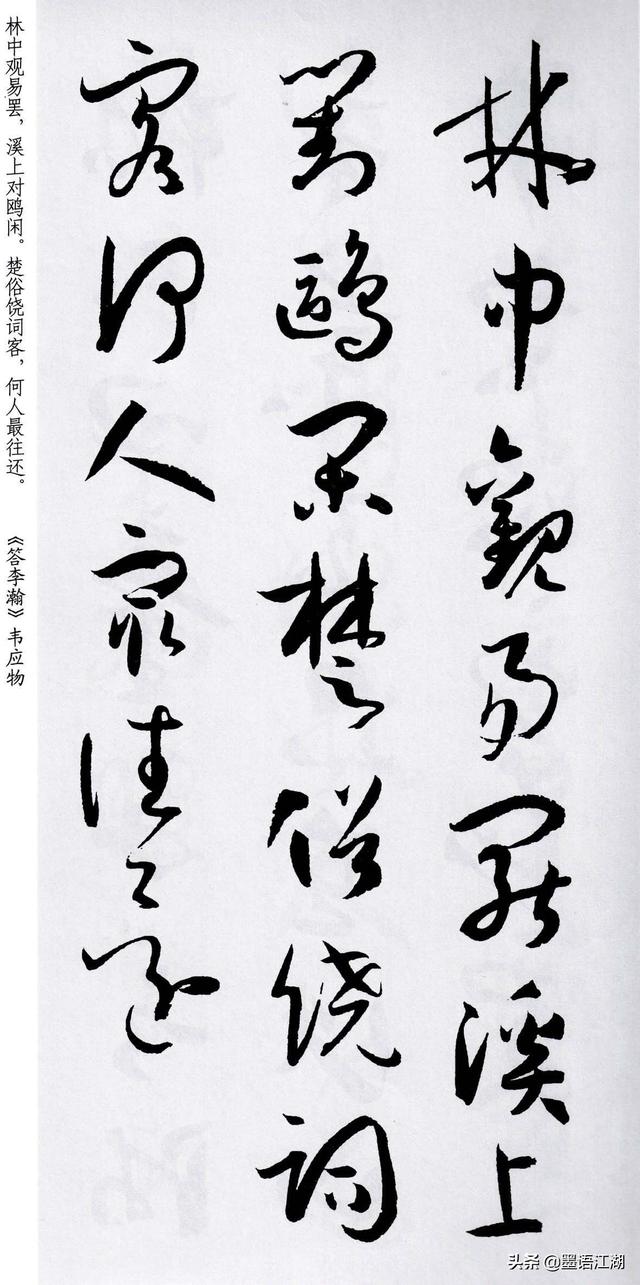 林中觀易罷溪上
對鷗閑楚俗饒詞
客何人最往還
林中观易罢，溪上对鸥闲。楚俗饶词客，何人最往还。 《答李瀚》韦应物
头条 @墨语江湖